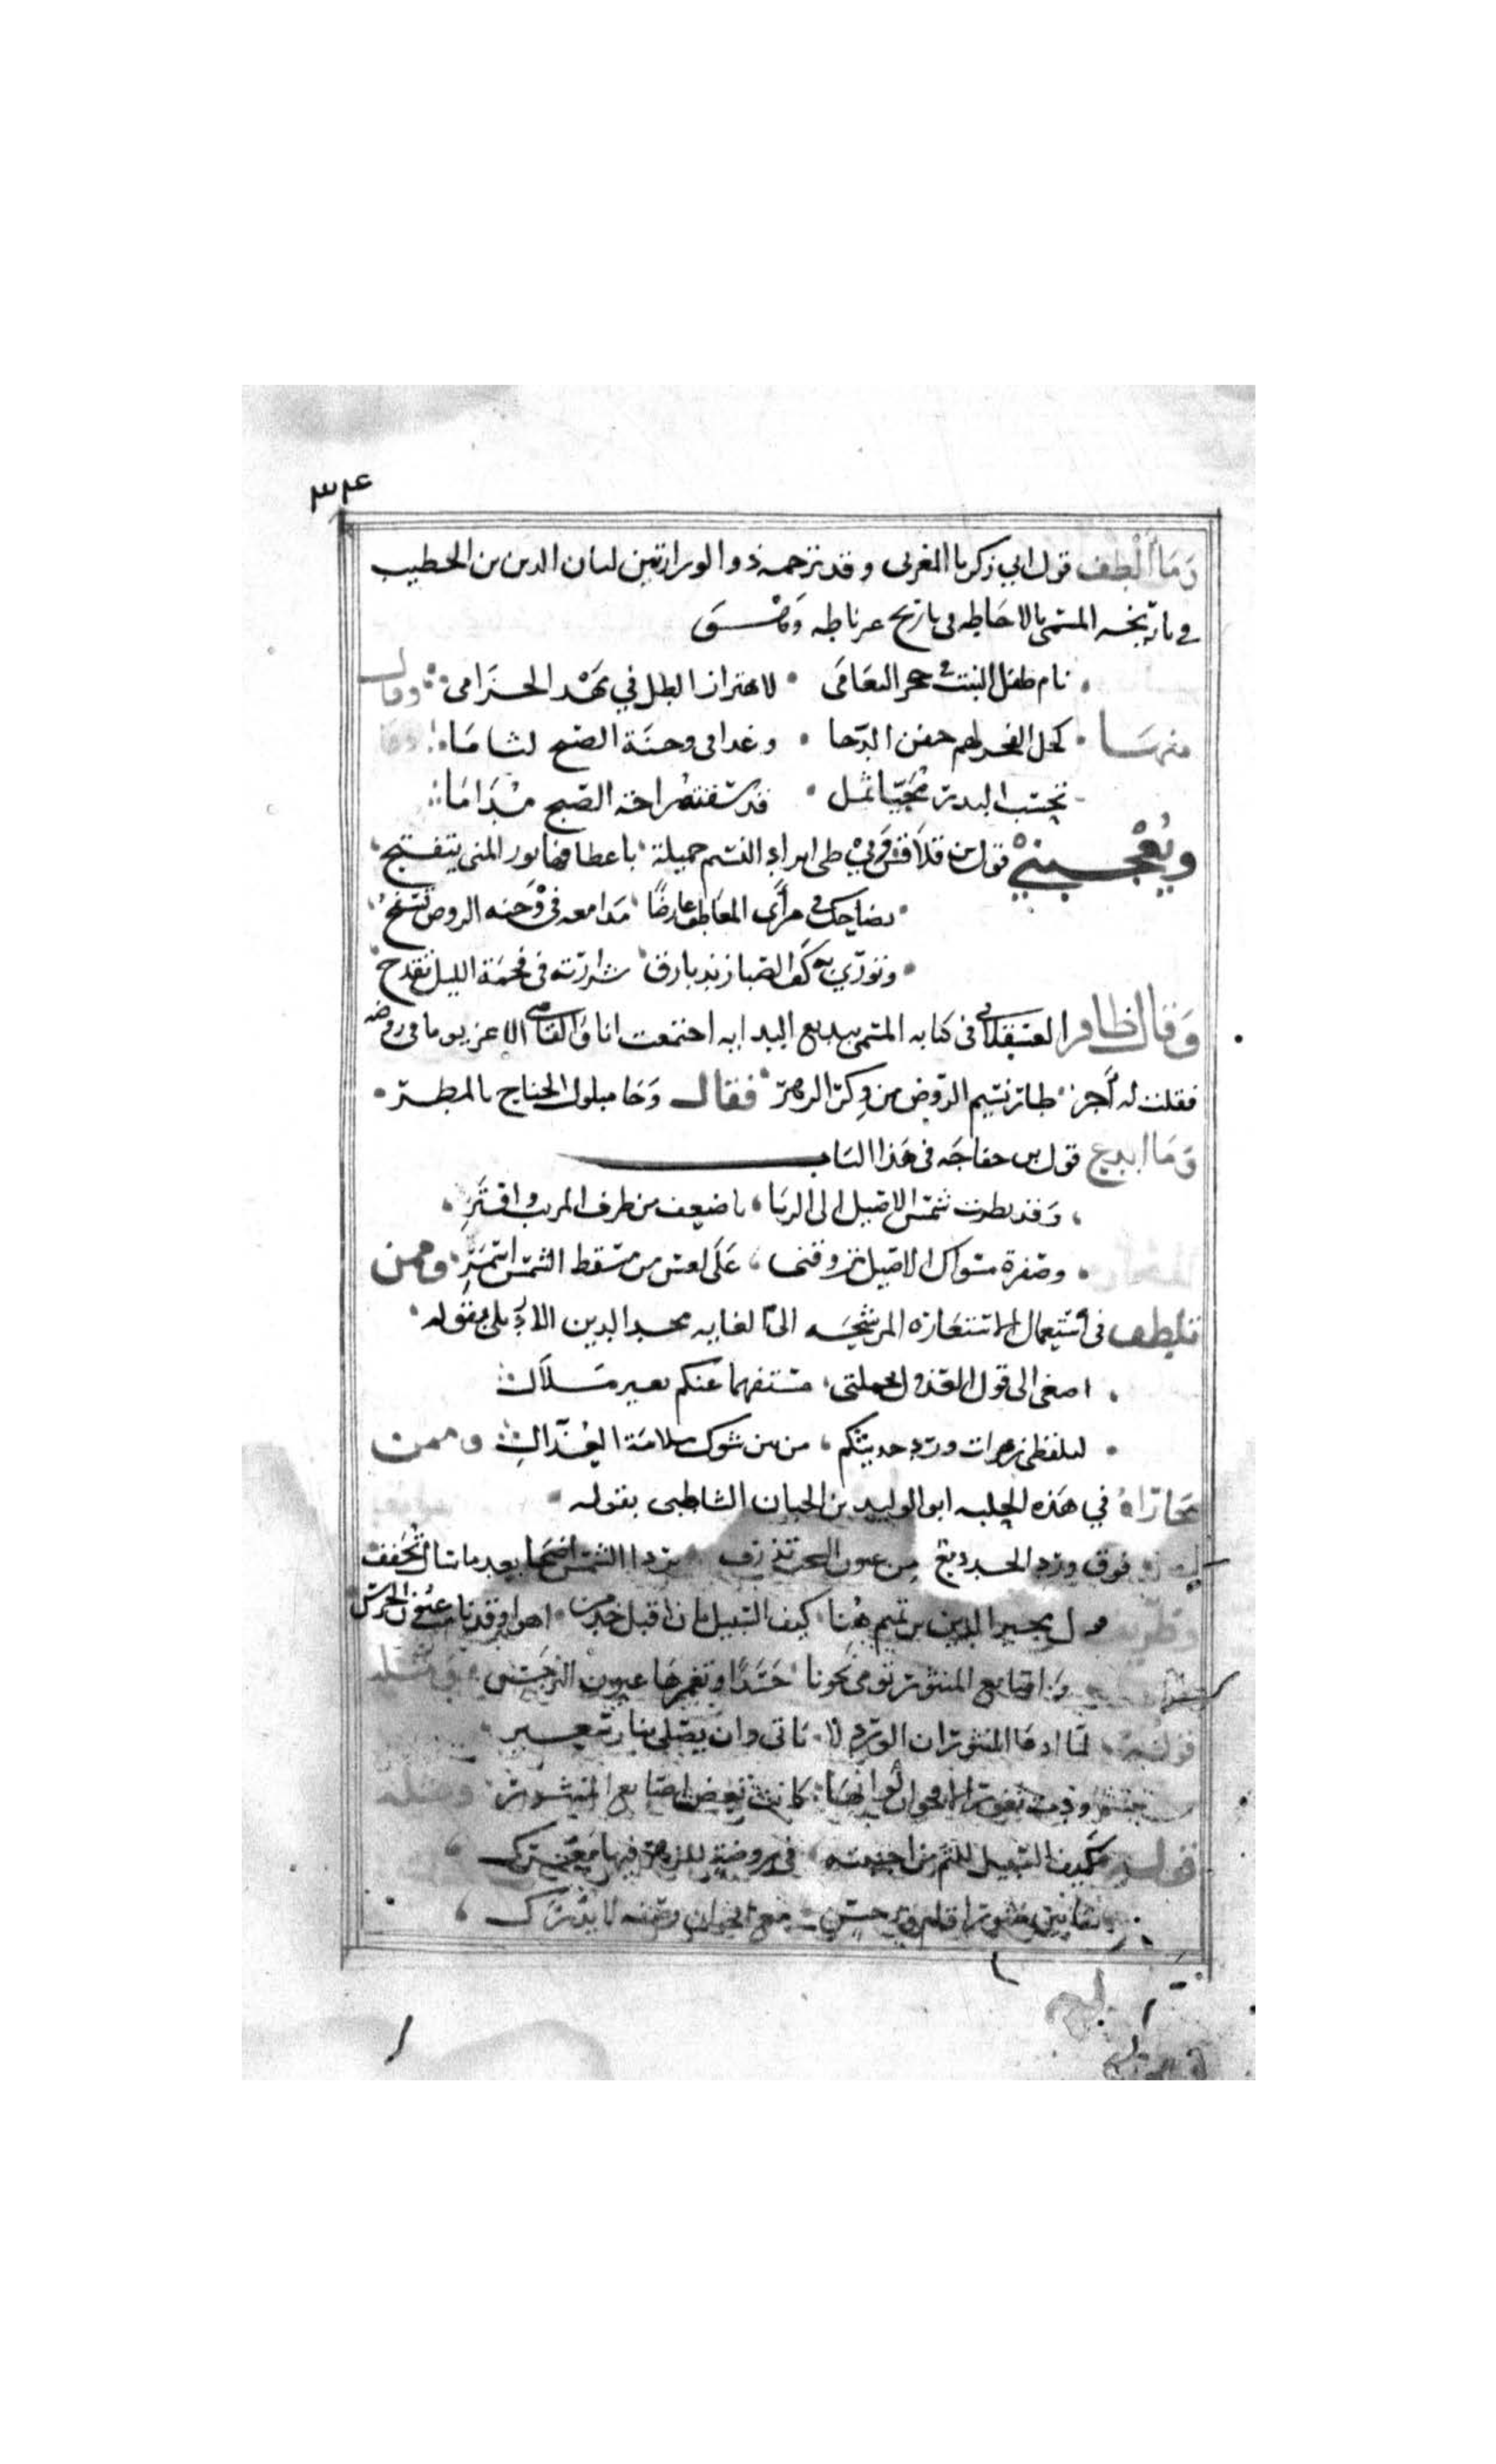 ٣٤
وما ألطف قول ابي زكريا المغربى وقد ترجمه ذو الوزارتين لسان الدين بن الخطيب
في تاريخه المسمى بالاحاطه فى تاريخ غرناطه وهو
نام طفل النبت في حجر النعامى • لاهتزاز الطل في مهد الخزامى وقال
منها • كحل الفجر لهم جفن الدجا • وغدا فى وجنة الصبح لثاما
تحسب البدر محيا ثمل • قد سقته راحة الصبح مداما
ويعجبني قول بن قلاقس وفي طى ابراد النسيم خميلة باعطافها نور المنى يتفتح
يضاحك في مرأى المعاطف عارضا مدامعه فى وجنه الروض تسفح
وتورى به كف الصبا زند بارق شرارته فى فحمة الليل تقدح
وقال ظافر العسقلانى فى كتابه المسمى ببدايع البدايه اجتمعت انا والقاضى الاعز يوما فى روضه
فقلت له أجز طار نسيم الروض من وكر الزهر فقال وجا مبلول الجناح بالمطر
وما ابدع قول بن خفاجه فى هذا الباب
وقد نظرت شمس الاصيل الى الربا باضعف من طرف المريب وافتر
وصفرة مسواك الاصيل تروقنى على لعس من مسقط الشمس اسمر وممن
تلطف فى استعمال الاستعاره المرشحه الى الغايه مجد الدين الاربلى بقوله
اصغى الى قول العذول بجملتى مستفهما عنكم بغير ملال
لتلقطى زهرات ورد حديثكم من بين شوك ملامة العذال وممن
جاراه في هذه الحلبه ابو الوليد بن الجنان الشاطبى بقوله
فوق ورد الخد دمع من عيون السحب تذرف بردا الشمس اضحى بعد ما سال يجفف
قول مجير الدين بن تميم هنا كيف السبيل لان اقبل خد من اهوى وقد نامت عيون الحرس
واصابع المنثور تومى نحونا حسدا وتغمزها عيون النرجس ومثله
قوله لما ادعا المنثور ان الورد لا ياتى وان يصلى بنار سعير
ثغور الاقحوان لو انها كانت تعض اصابع المنثور ومثله
قوله كيف السبيل للثم من احببته فى روضة للزهر فيها معرك
ما بين منثور اقام ونرجس مع اقحوان وصفه لا يدرك